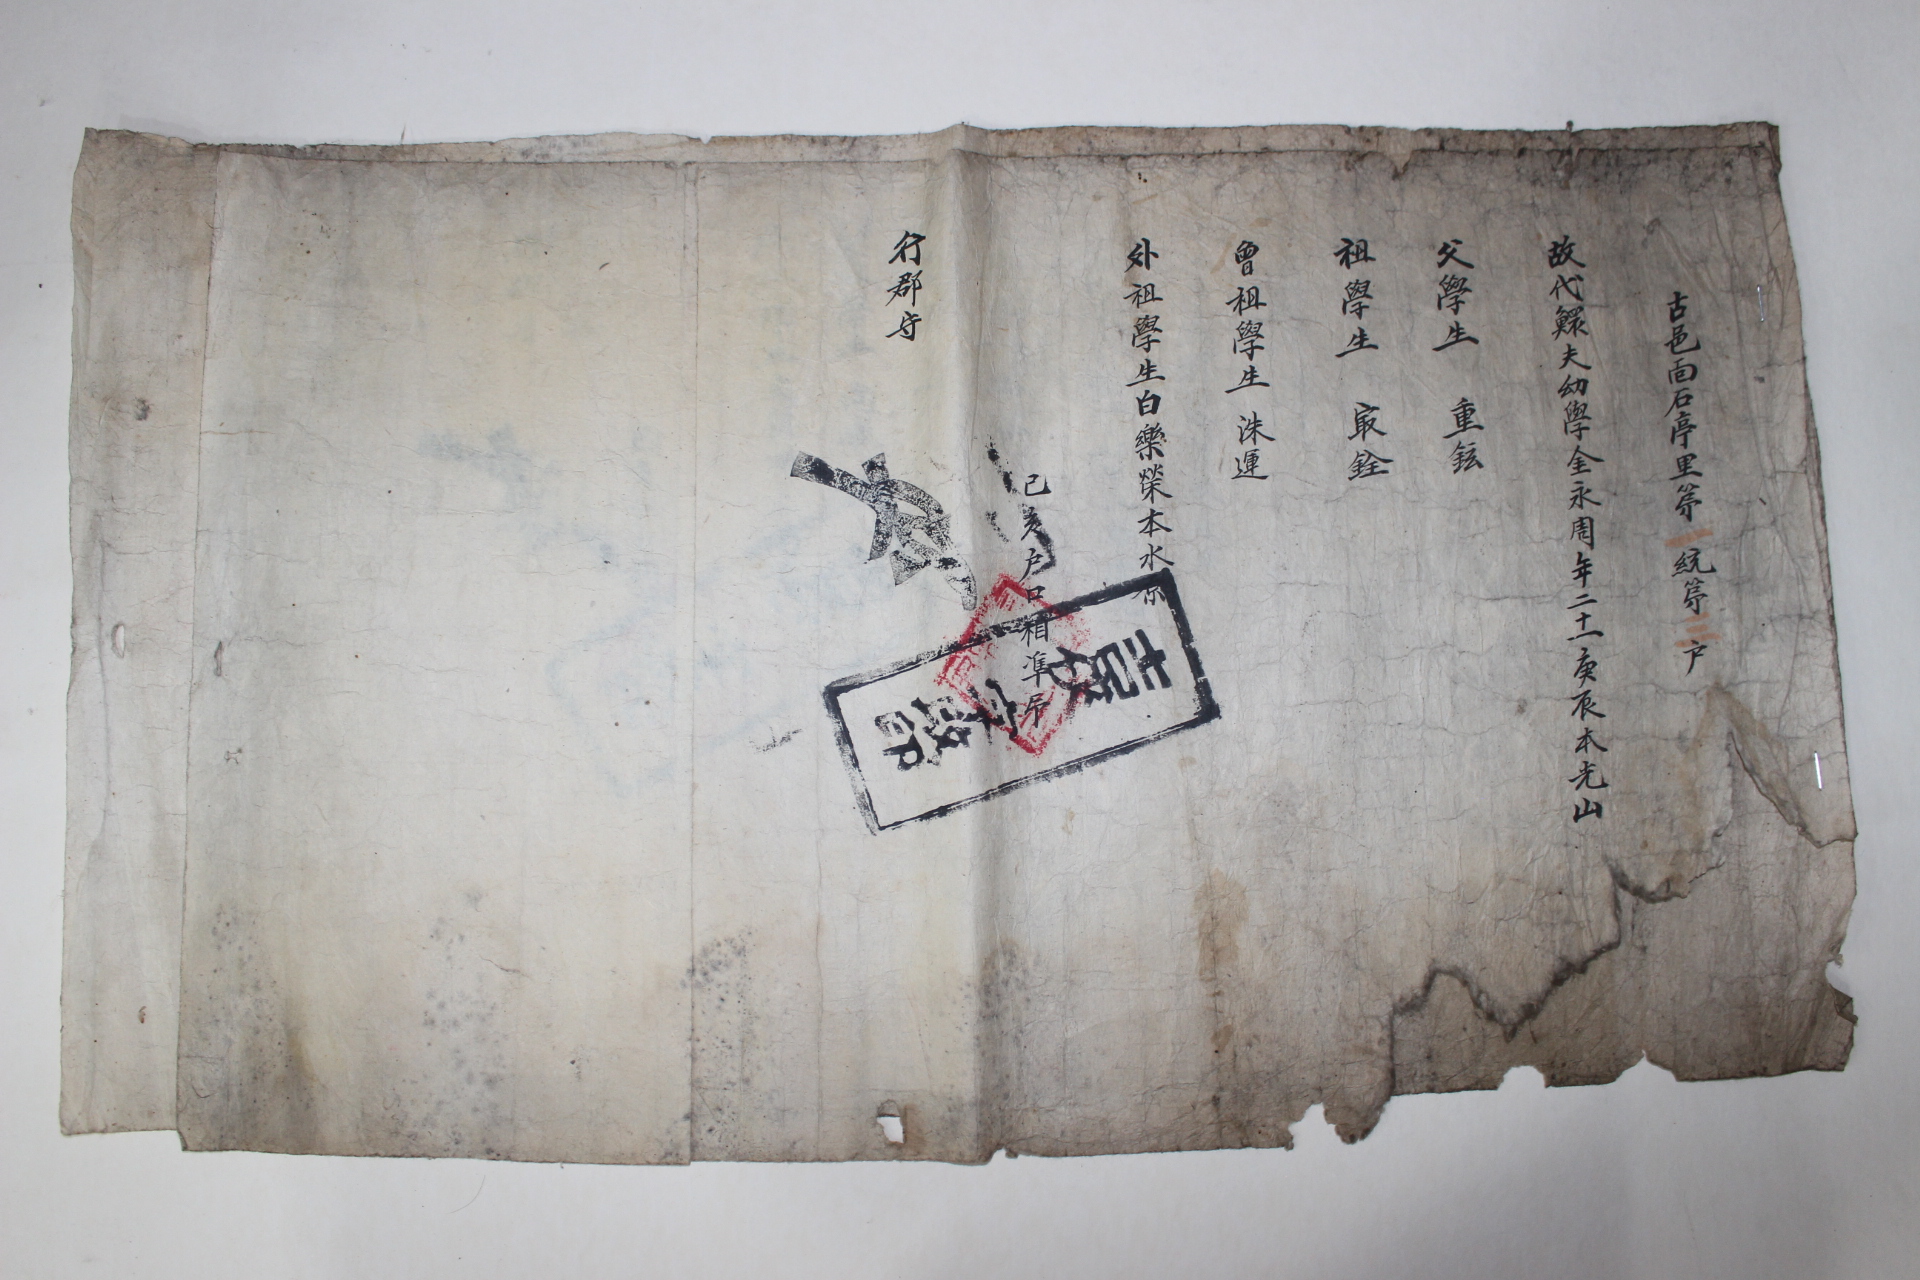 古邑面石亭里第一統第三戶
故代鰥夫幼學金永周年二十庚辰本光山
父學生 重鉉
祖學生 㝡銓
曾祖學生 洙運
外祖學生白樂榮本水原
己亥戶口相準帖
行郡守